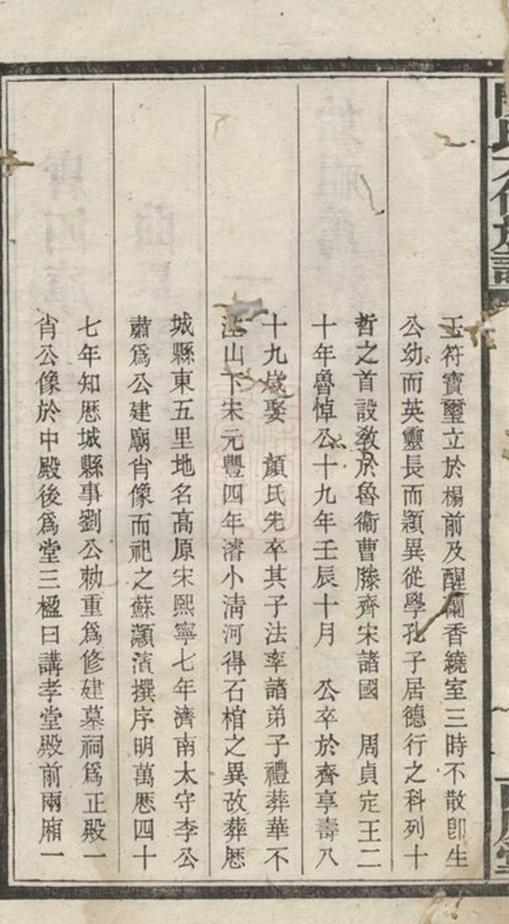 閔氏大傳族譜
玉符寶璽立於榻前及醒蘭香繞室三時不散卽生
公幼而英靈長而穎異從學孔子居德行之科列十
哲之首設教於魯衞曹滕齊宋諸國　周貞定王二
十年魯悼公十九年壬辰十月　公卒於齊享壽八
十九歲娶　顏氏先卒其子法率諸弟子禮葬華不
注山下宋元豐四年濬小淸河得石棺之異改葬歷
城縣東五里地名高原宋熙寧七年濟南太守李公
肅爲公建廟肖像而祀之蘇潁濱撰序明萬厯四十
七年知厯城縣事劉公勑重爲修建墓祠爲正殿一
肖公像於中殿後爲堂三楹曰講孝堂殿前兩廂一